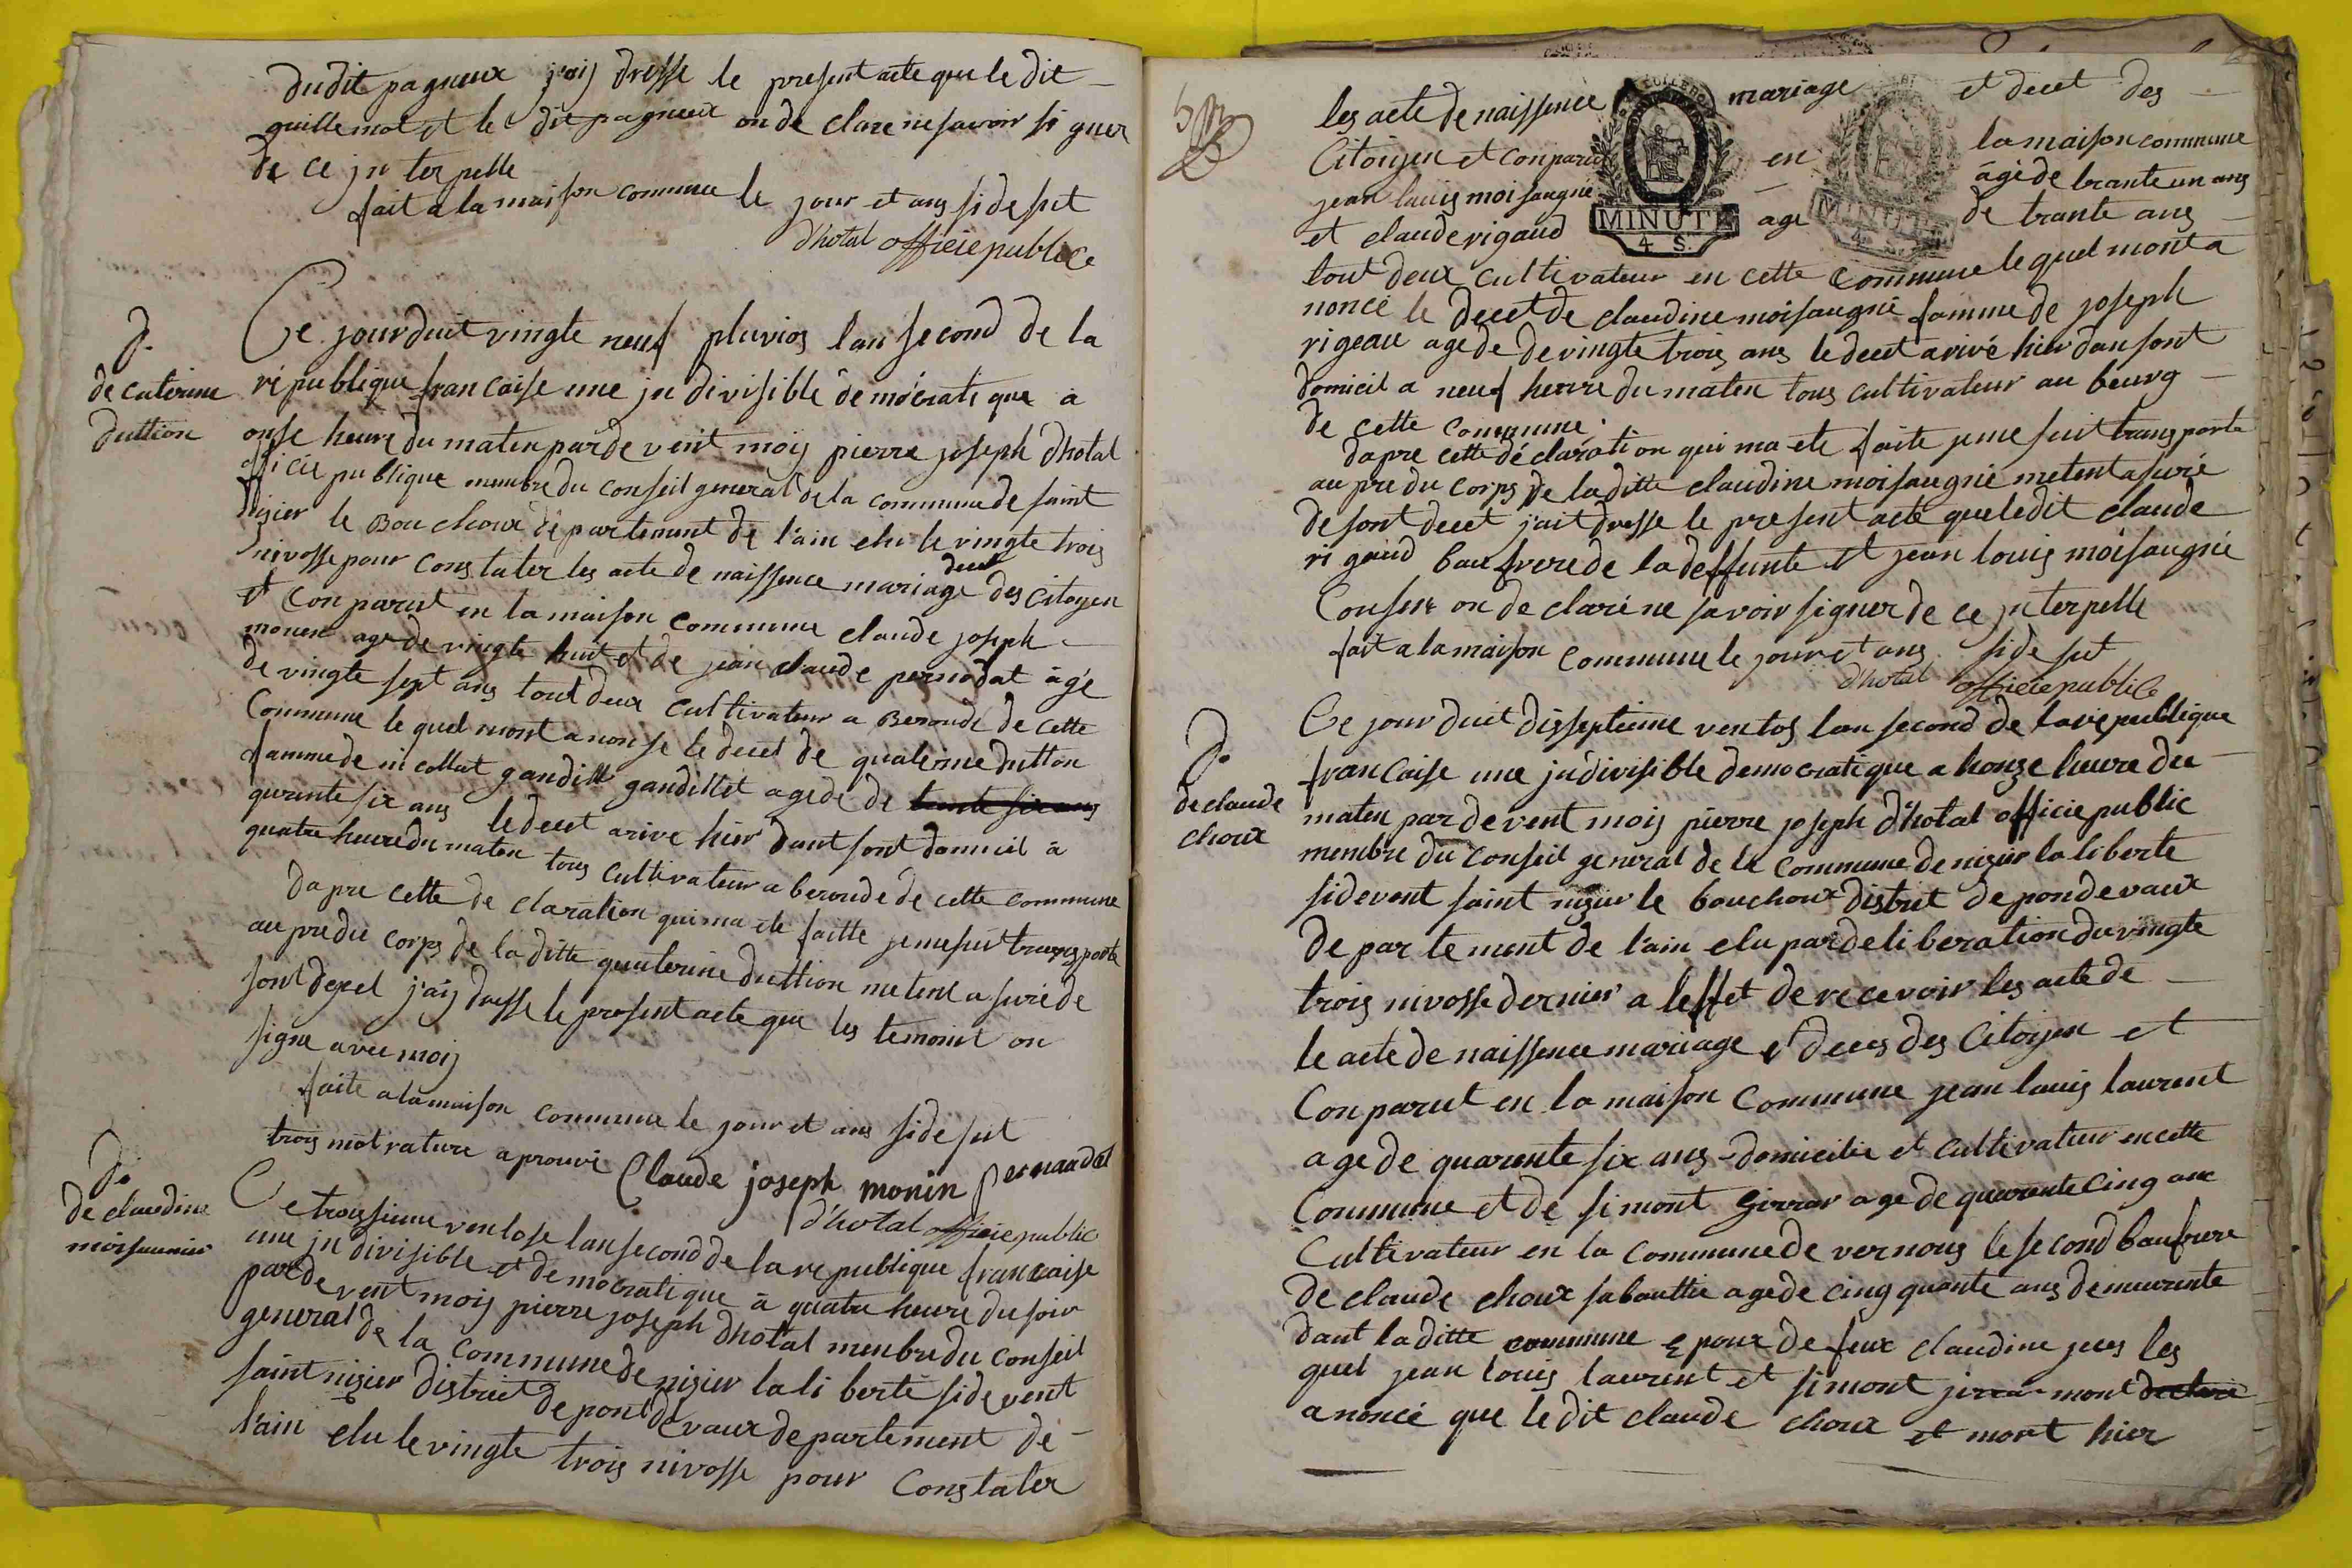 dudit pagneux j'aij dresse le present acte que le dit
guillemot et le dit pagneux on de clare ne savoir si gner
de ce jn ter pelle
fait a la maison commune le jour et ans si de sut
d'hotal officie publice
D.
de caterine
duttion
Ce jourduit vingte neuf pluvios lan second de la
république francaise une jn divisible démocratique a
onse heure du maten par de vent moij pierre joseph dhotal
officie publique menbre du conseil general de la commune de saint
nisier le Bouchoux departement de l'ain elu le vingte trois
nivosse pour constater les acte de naissence mariage decet des citoyen
et conparut en la maison commune claude joseph
monen age de vingte huit et de jean claude pernodat âgé
de vingte sept ans tout deux cultivateur a Beroude de cette
Commune le quel mont anonse le decet de quaterine dutton
famme de nicollat gandill gandillet agede de trante six ans
qurante six ans le decet arive hier dant sont domicil à
quatre heure du maten tous cultivateur a beroude de cette commune
dapre cette de claration qui ma ete faitte je me suit transporte
au pre du corps de la ditte quaterine duttion metent asuré de
sont decet j'aij dresse le present acte que les temoint on
signe avec moij
faite a la maison commune le jour et ans si de sut
trois mot rature aprouvé Claude joseph monin pernaudat
d'hotal officie public
D.
de claudine
moisonnier
Ce troissieme ventose lan second de la republique francaise
une jn divisible et democratique à quatre heure du soir
par de vent moij pierre joseph dhotal menbre du conseil
general de la commune de nisier la li berte si de vent
saint nisier district de pont de vaux departement de
l'ain elu le vingte trois nivosse pour constater
les acte de naissence mariage et decet des
Citoiyen et conparu en la maison commune
jean louis moisaugné âgé de trante un ans
et claude rigaud age de trante ans
MINUTE
4 S.
MINUTE
4 S.
tout deux cultivateur en cette commune le quel mont a
noncé le decet de claudine moisaugné famme de joseph
rigeau agede de vingte trois ans le decet arivé hier dan sont
domicil a neuf heure du maten tous cultivateur au beurg
de cette commune
dapre cette déclaration qui ma ete faite je me suit transporte
au pre du corps de la ditte claudine moisaugné metent asuré
de sont decet j'ait dresse le present acte que le dit claude
ri gaud bau frere de la deffunte et jean louis moisaugné
Consen on de claré ne savoir signer de ce jn terpelle
fait a la maison commune le jour et ans si de sut
d'hotal officie public
D.
de claude
choux
Ce jour duit disseptieme ventos lan second de la republique
francaise une jndivisible democratique a honze heure du
maten par de vent moij pierre joseph d'hotal officie public
menbre du conseil general de la commune de nisier la liberte
si devent saint nisier le bouchoux distrit de pondevaux
de par te ment de l'ain elu par de li beration du vingte
trois nivosse dernier a leffet de recevoir les acte de
le acte de naissence mariage et deces des Citoyen et
Conparut en la maison commune jean louis laurent
age de quarente six ans domicilie et cultivateur en cette
Commune et de simont girrar age de quarente cinq ans
Cultivateur en la commune de vernous le second baufrere
de claude choux sabouttie agede cinq quante ans demeurente
dant la ditte commune epoux de feux claudine jeres les
quel jean louis laurent et simont jirrar mont declare
anoncé que le dit claude choux et mort hier